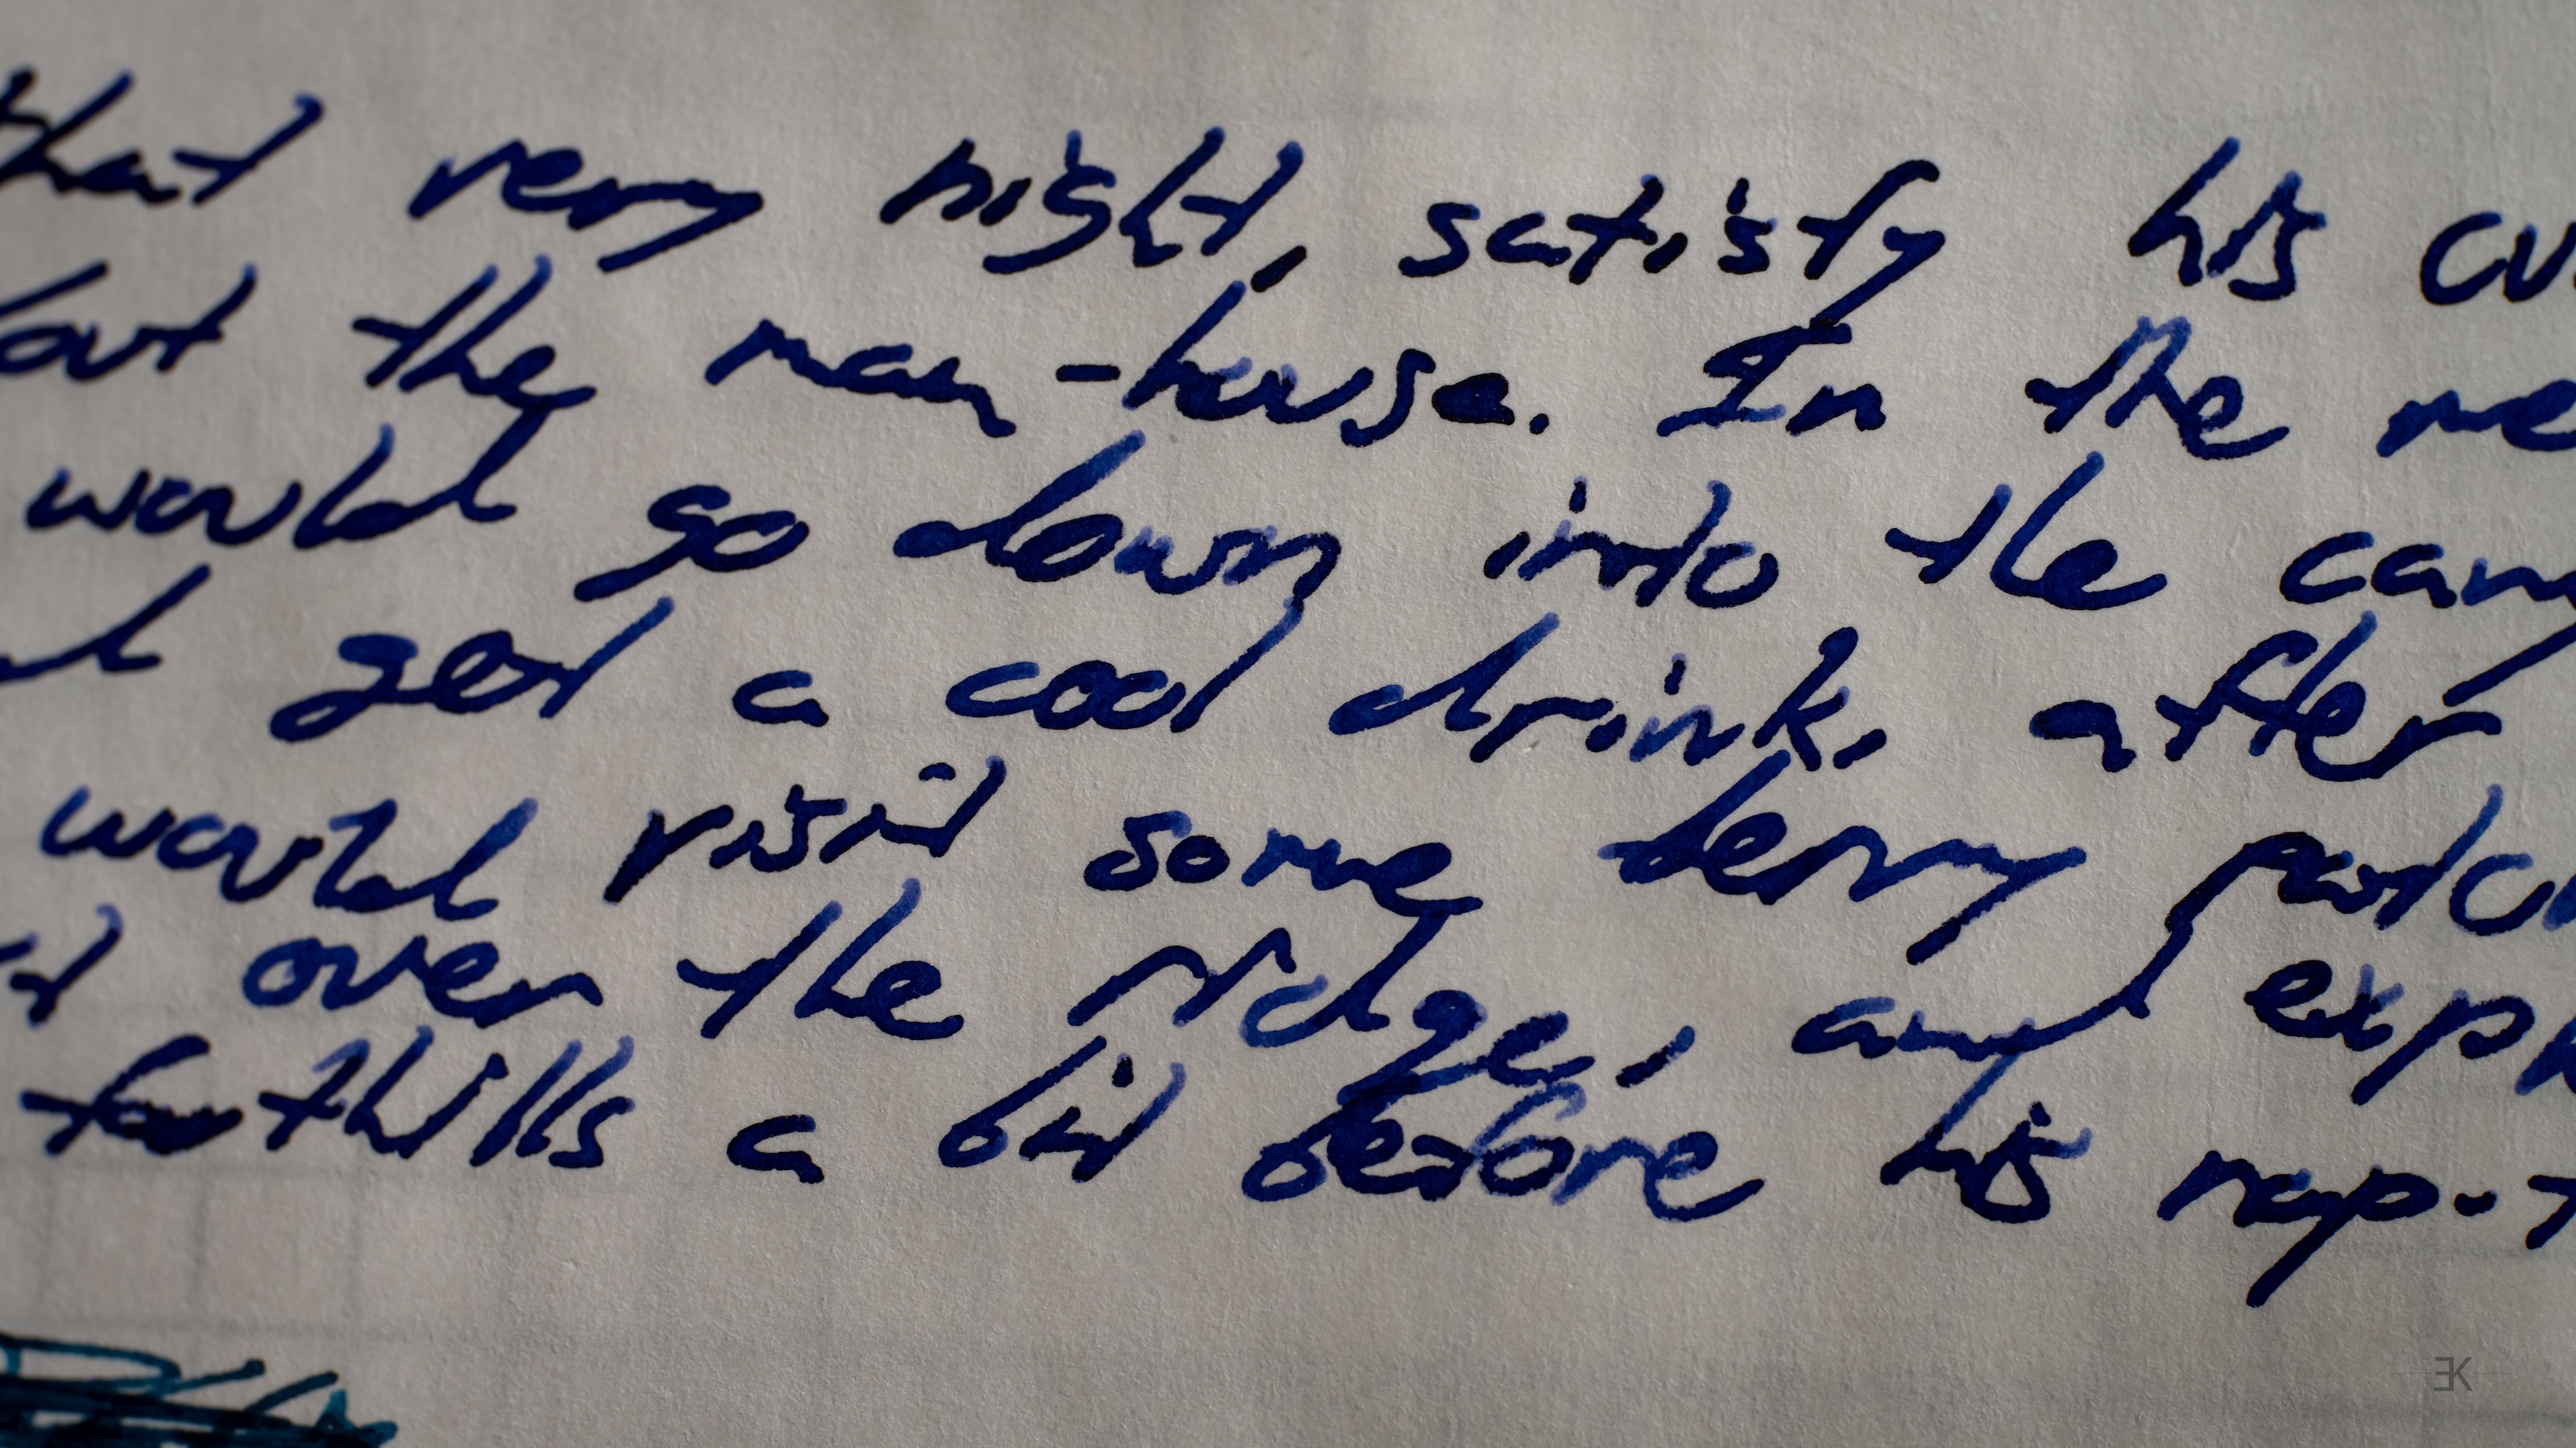 that very night, satisfy his cu
out the man-house. In the me
would go down into the can
get a cool drink, after
would visit some berry patc
over the ridge, and exp
foothills a bit before his nap.
EK